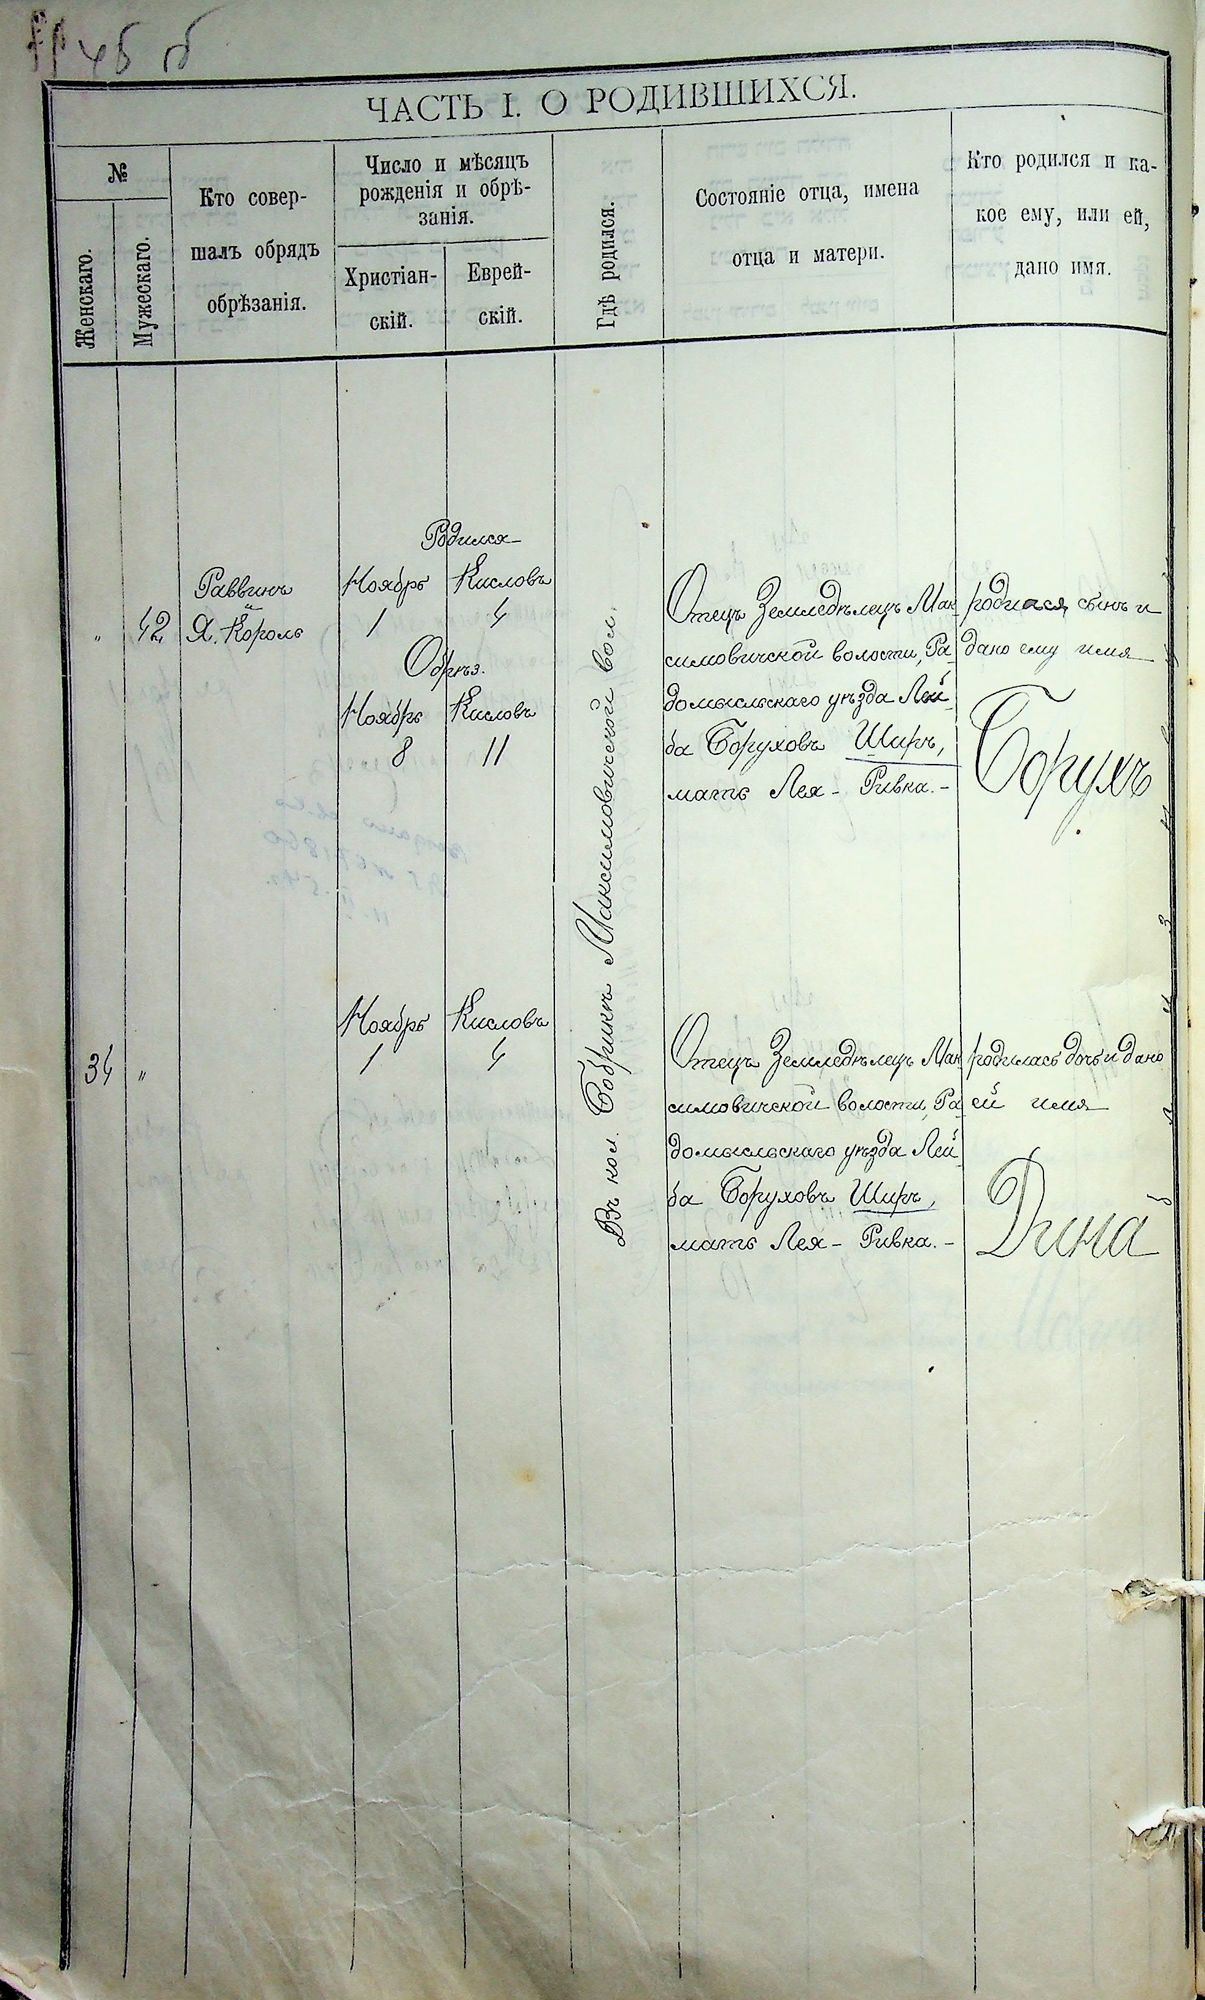 ЧАСТЬ I. О РОДИВШИХСЯ.
№
Женскаго.
Мужескаго.
Кто совер-
шалъ обрядъ
обрѣзанія.
Число и мѣсяцъ
рожденія и обрѣ-
занія.
Христіан-
скій.
Еврей-
скій.
Гдѣ родился.
Состояніе отца, имена
отца и матери.
Кто родился и ка-
кое ему, или ей,
дано имя.
"
42
Раввинъ
Я. Король
Родился
Ноябрь
1
Кисловъ
4
Обрѣз.
Ноябрь
8
Кисловъ
11
Въ кол. Бобрикъ Максимовической вол.
Отецъ Земледѣлецъ Мак
симовичской волости, Ра
домысльскаго уѣзда Лей
ба Боруховъ Ширъ,
мать Лея - Ривка. -
родился сынъ и
дано ему имя
Борухъ
34
"
Ноябрь
1
Кисловъ
4
Отецъ Земледѣлецъ Мак
симовичской волости, Ра
домысльскаго уѣзда Лей
ба Боруховъ Ширъ,
мать Лея - Ривка. -
родилась дочь и дано
ей имя
Дина